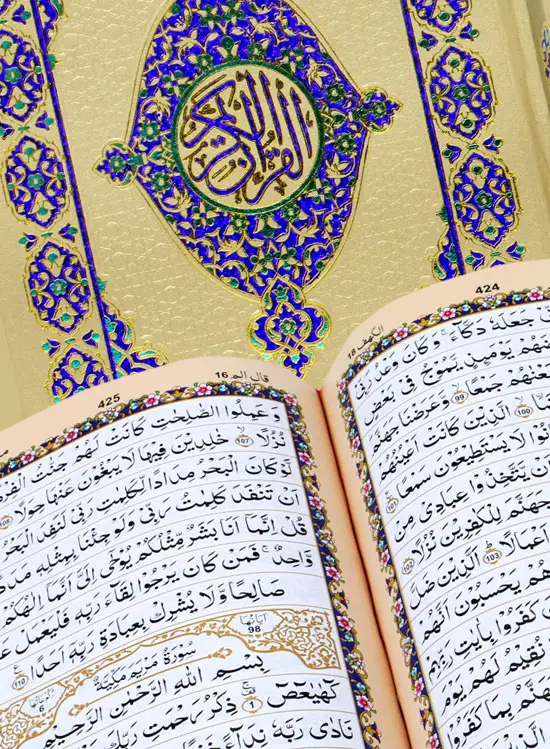 القرآن الكريم
424
الكهف 18
جَعَلَهٗ دَكَّآءَ ۚ وَكَانَ وَعْدُ
يَّوْمَئِذٍ يَّمُوْجُ فِيْ بَعْضٍ
جَمْعًا ۙ﴿99﴾ وَّعَرَضْنَا
﴿100﴾ ۨالَّذِيْنَ كَانَتْ اَعْيُنُهُمْ
لَا يَسْتَطِيْعُوْنَ سَمْعًا ﴿101﴾
اَنْ يَّتَّخِذُوْا عِبَادِيْ مِنْ
جَهَنَّمَ لِلْكٰفِرِيْنَ نُزُلًا ﴿102﴾
اَعْمَالًا ﴿103﴾ اَلَّذِيْنَ ضَلَّ
يَحْسَبُوْنَ اَنَّهُمْ
كَفَرُوْا بِاٰيٰتِ رَبِّهِمْ
نُقِيْمُ لَهُمْ يَوْمَ
بِمَا كَفَرُوْا
الَّذِيْنَ
425
قال الم 16
وَعَمِلُوا الصّٰلِحٰتِ كَانَتْ لَهُمْ جَنّٰتُ
نُزُلًا ﴿107﴾ خٰلِدِيْنَ فِيْهَا لَا يَبْغُوْنَ عَنْهَا حِوَلًا ﴿108﴾
لَّوْ كَانَ الْبَحْرُ مِدَادًا لِّكَلِمٰتِ رَبِّيْ لَنَفِدَ الْبَحْرُ
اَنْ تَنْفَدَ كَلِمٰتُ رَبِّيْ وَلَوْ جِئْنَا بِمِثْلِهٖ مَدَدًا
قُلْ اِنَّمَآ اَنَا بَشَرٌ مِّثْلُكُمْ يُوْحٰٓى اِلَيَّ اَنَّمَآ اِلٰهُكُمْ
وَّاحِدٌ ۚ فَمَنْ كَانَ يَرْجُوْا لِقَآءَ رَبِّهٖ فَلْيَعْمَلْ
صَالِحًا وَّلَا يُشْرِكْ بِعِبَادَةِ رَبِّهٖٓ اَحَدًا ﴿110﴾
اٰيَاتُهَا 98
سُوْرَةُ مَرْيَمَ مَكِّيَّةٌ
6
بِسْمِ اللّٰهِ الرَّحْمٰنِ الرَّحِيْمِ
كٓهٰيٰعٓصٓ ﴿1﴾ ذِكْرُ رَحْمَتِ رَبِّكَ
نَادٰى رَبَّهٗ نِدَآءً